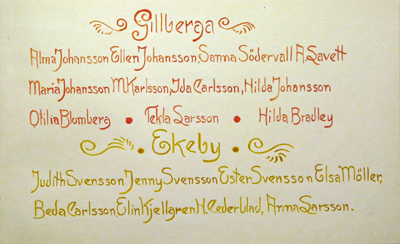 Gillberga
Alma Johansson Ellen Johansson, Sanna Södervall A. Savett
Maria Johansson M. Karlsson, Ida Carlsson, Hilda Johansson
Otilia Blomberg • Tekla Larsson • Hilda Bradley
• Ekeby •
Judith Svensson Jenny Svensson Ester Svensson Elsa Möller,
Beda Carlsson Elin Kjellgren H. Cederblad, Anna Larsson.